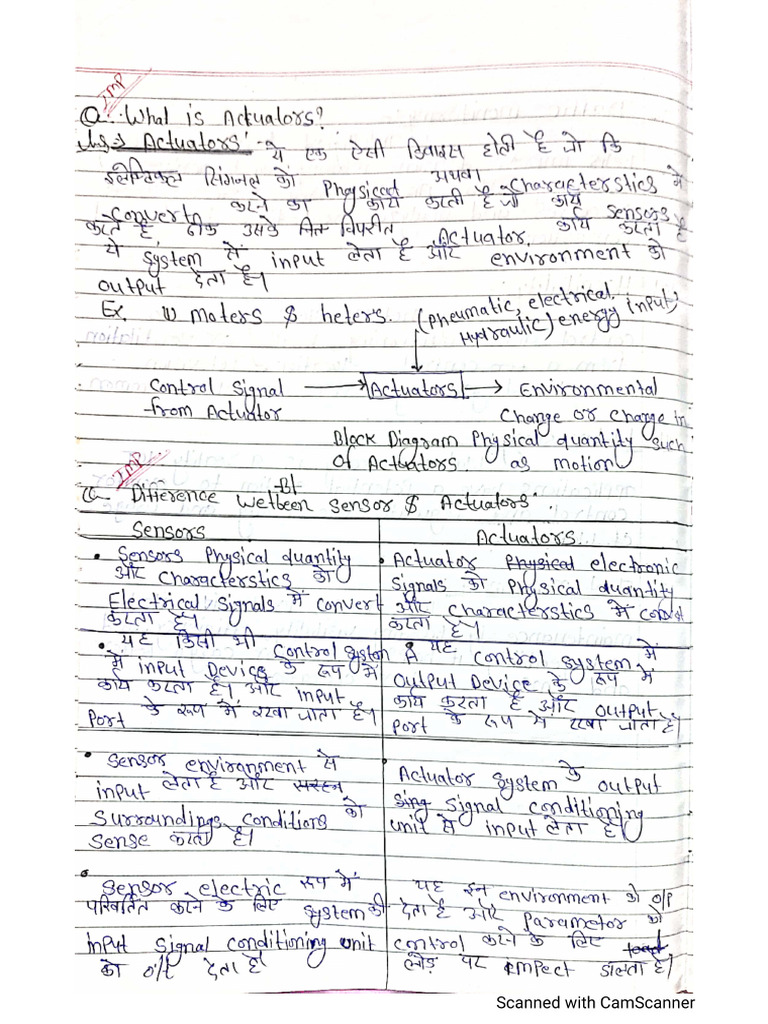 IMP
Q. What is Actuators?
Ans⇒ Actuators' - ये एक ऐसी डिवाइस होती है जो कि
इलेक्ट्रिकल सिंगनल को Physical अथवा Characterstics में
Convert करने का कार्य करती है जो कार्य Sensors
करते है, ठीक उसके विपरीत Actuator कार्य करता है
ये System से input लेता है और environment को
output देता है।
Ex. moters & heters. (Pneumatic, electrical,
Hydraulic) energy (input)
Control Signal → Actuators → Environmental
from Actuator Change or Change in
Block Diagram Physical quantity such
Of Actuators. as motion
IMP
Q Difference Wetbeen Bt Sensor & Actuators'
Sensors Actuators.
• Sensors Physical quantity
और Characterstics को
Electrical Signals में convert
करता है।
• Actuator Physical electronic
Signals को Physical quantity
और Characterstics में
करता है।
• यह किसी भी Control System
में input Device के रूप में
कार्य करता है। और input
Port के रूप में रखा जाता है।
• यह Control System में
output Device के रूप में
कार्य करता है और output
Port के रूप में रखा जाता है।
• Sensor environment से
input लेता है और
Surroundings Conditions को
Sense करता है।
• Actuator System के output
sing Signal conditioning
unit से input लेता है।
• Sensor electric रूप में
परिवर्तित करने के लिए System की
input Signal Conditioning unit
को o/t देता है।
यह इन environment को o/p
देता है और Parameter को
control करने के लिए
लोड पर impect डालता है।
Scanned with CamScanner